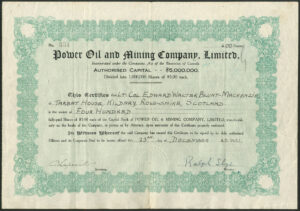 No.
400 Shares
Power Oil and Mining Company, Limited.
Incorporated under the Companies Act of the Dominion of Canada
AUTHORISED CAPITAL - $5,000,000.
Divided into 1,000,000 Shares of $5.00 each.
This Certifies that Lt. Col. Edward Walter Blunt-Mackenzie
of Tarbat House, Kildary, Ross-shire, Scotland
is the owner of Four Hundred
fully-paid Shares of $5.00 each of the Capital Stock of POWER OIL & MINING COMPANY, LIMITED, transferable
only on the books of the Company, in person or by Attorney upon surrender of this Certificate properly endorsed.
In Witness Whereof the said Company has caused this Certificate to be signed by its duly authorised
Officers and its Corporate Seal to be hereto affixed this 23rd day of December
Ralph Slye